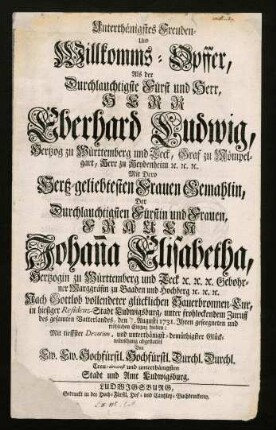 Unterthänigstes Freuden-
Und
Willkomms-Opffer,
Als der
Durchlauchtigste Fürst und Herr,
HERR
Eberhard Ludwig,
Hertzog zu Württemberg und Teck, Graf zu Mömpel-
gart, Herr zu Heydenheim ꝛc. ꝛc. ꝛc.
Mit Dero
Hertz-geliebtesten Frauen Gemahlin,
Der
Durchlauchtigsten Fürstin und Frauen,
FRAUEN
Johanna Elisabetha,
Hertzogin zu Württemberg und Teck ꝛc. ꝛc. ꝛc. Gebohr-
ner Marggräfin zu Baaden und Hochberg ꝛc. ꝛc. ꝛc.
Nach Gottlob vollendeter glücklichen Saurbronnen-Cur,
in hiesiger Residenz-Stadt Ludwigsburg, unter frohlockendem Zuruff
des gesamten Vatterlandes, den 7. Augusti 1731. Ihren gesegneten und
frölichen Einzug hielten:
Mit tieffster Devotion, und unterthänigst-demüthigster Glück-
wünschung abgestattet
Von
Ew. Ew. Hochfürstl. Hochfürstl. Durchl. Durchl.
Treu- und unterthänigsten
Stadt und Amt Ludwigsburg.
LUDWIGSBURG,
Gedruckt in der Hoch-Fürstl. Hof- und Cantzley-Buchdruckerey.